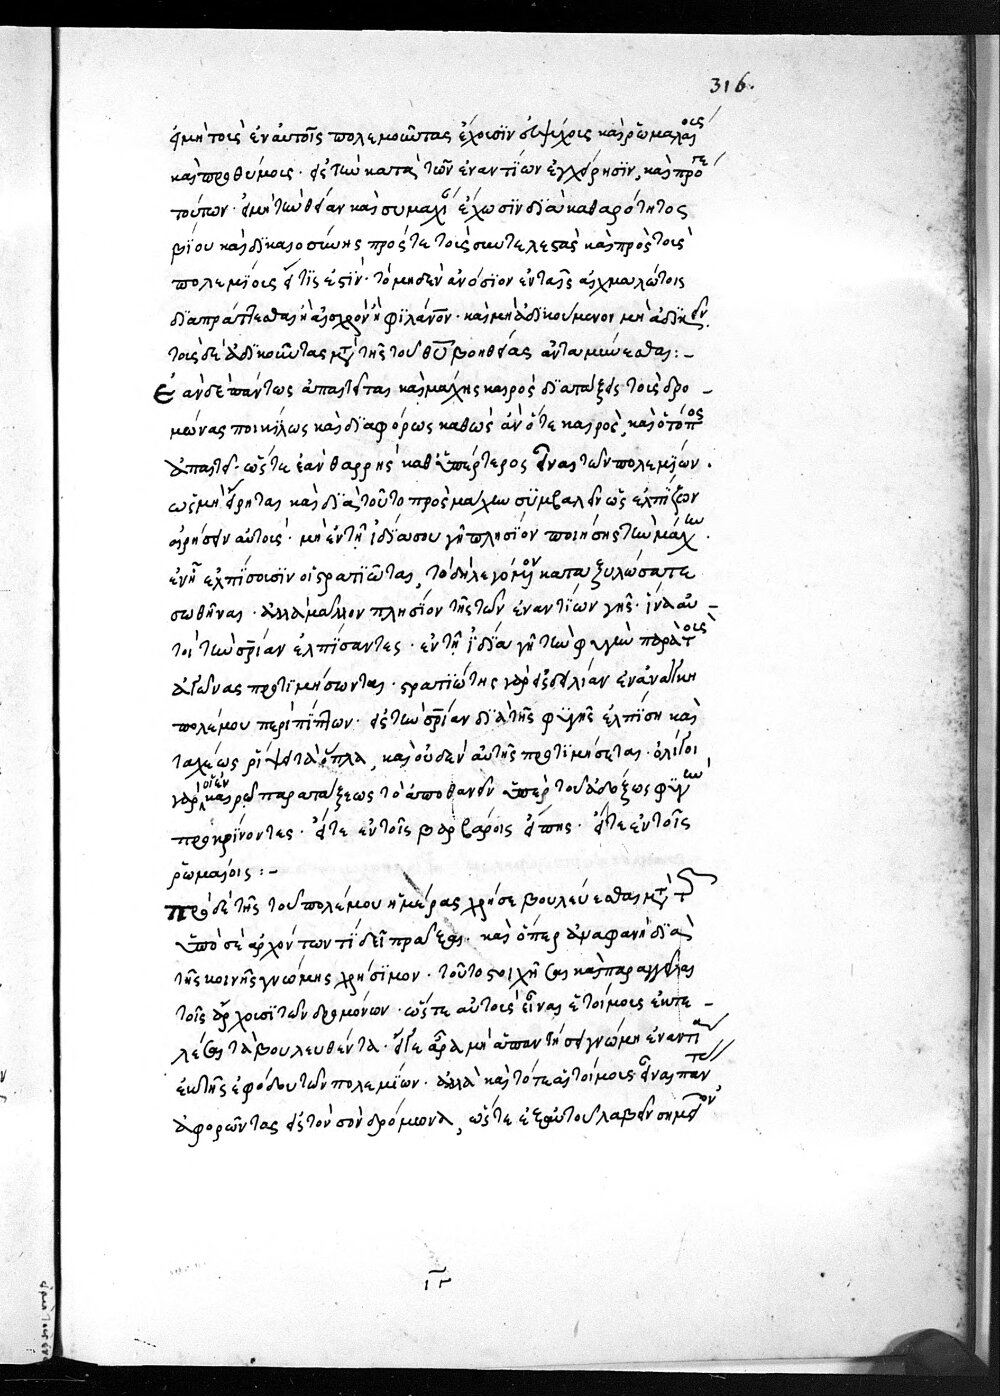 316.
εἰ μὴ τοὺς ἐν αὐτοῖς πολεμοῦντας ἔχοισϊν εὐψύχους καὶ ῥωμαλαίους
καὶ προθύμους· εἰς τὴν κατὰ τῶν ἐναντίων ἐγχείρησϊν, καὶ προτε
τούτων· εἰ μὴ τὴν θείαν καὶ συμαχί ἔχωσϊν διὰ καθαρότητος
βίου καὶ δικαιοσύνης πρός τε τοὺς συντελεστὰς καὶ πρὸς τοὺς
πολεμίους εἴ τις ἐστϊν· τὸ μηδὲν ἀνόσϊον ἐν ταῖς αἰχμαλώτοις
διαπράττεσθαι ἢ αἰσχρὸν ἢ φιλάνον· καὶ μὴ ἀδικούμενοι μὴ ἀδικεῖν
τοὺς δὲ ἀδικοῦντας μετὰ τῆς τοῦ θῦ βοηθείας ἀνταμύνεσθαι :–
Ἐὰν δὲ πάντως ἀπαιτεῖται καὶ μάχης καιρὸς διατάξεις τοὺς δρο –
μώνας ποικίλως καὶ διαφόρως καθὼς ἂν ὅ τε καιρὸς, καὶ ὁ τόπος
ἀπαιτεῖ· ὥστε ἐὰν θαρρῆς καθυπέρτερος εἶναι τῶν πολεμίων.
ὡς μὴ εἴρηται καὶ διὰ τοῦτο πρὸς μάχην συμβαλεῖν ὡς ἐλπίζων
αἱρήσειν αὐτούς· μὴ ἐν τῇ ἰδίᾳ σου γῇ πλησίον ποιήσης τὴν μάχην.
ἐν ᾗ ἐλπίσουσϊν οἱ στρατιῶται, τὸ δὴ λεγόμενον καταξυλώσατε
σωθῆναι· ἀλλὰ μᾶλλον πλησίον τῆς τῶν ἐναντίων γῆς· ἵνα αὐ –
τοὶ τὴν σρίαν ἐλπίσαντες· ἐν τῇ ἰδίᾳ γῇ τὴν φυγὴν παρὰ τοὺς
ἀγῶνας προτιμήσωνται· στρατιώτης γὰρ ἐξ δειλίαν ἐν ἀνάγκη
πολέμου περιπίπτων· εἰς τὴν σρίαν διὰ τῆς φυγῆς ἐλπίση καὶ
ταχέως ῥίψει τὰ ὅπλα, καὶ οὐδὲν αὐτῆς προτιμήσεται· ὀλίγοι
γὰρ οἱ ἐν καιρῷ παρατάξεως τὸ ἀποθανεῖν ὑπὲρ τοῦ ἀδόξως φυγεῖν
προκρίνοντες· εἴτε ἐν τοῖς βαρβάροις εἴπης· εἴτε ἐν τοῖς
ῥωμαίοις :–
Πρὸ δὲ τῆς τοῦ πολέμου ἡμέρας χρή σε βουλεύεσθαι μετὰ τ
ὑπὸ σὲ ἀρχόντων τί δεῖ πράξαι· καὶ ὅπερ ἀναφανῇ διὰ
τῆς κοινῆς γνώμης χρήσϊμον· τοῦτο στοιχῆσαι καὶ παραγγεῖλαι
τοῖς ἄρχουσϊ τῶν δρομόνων· ὥστε αὐτοὺς εἶναι ἑτοίμους ἐκτε –
λέσαι τὰ βουλευθέντα· εἴγε ἄρα μὴ ἅπαντή σε γνώμη ἐναντία
ἐκ τῆς ἐφόδου τῶν πολεμίων· ἀλλὰ καὶ τότε αἰτοίμους εἶναι πάντες
ἀφορῶντας εἰς τὸν σὸν δρόμωνα, ὥστε ἐξ αὐτοῦ λαβεῖν σημεῖον